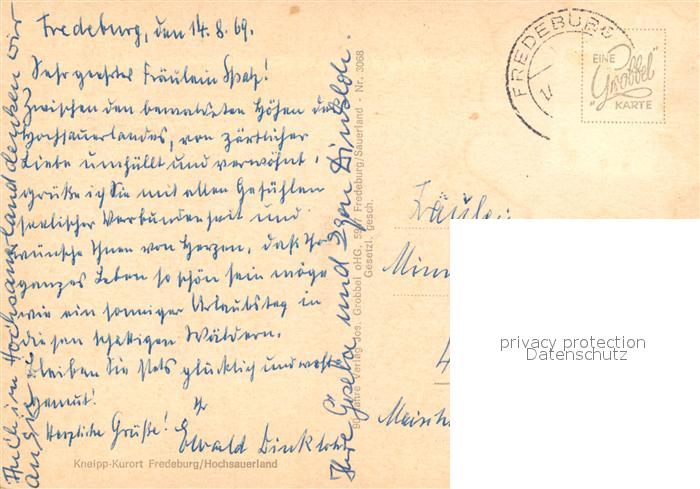 Fredeburg, den 14.8.69.
Sehr geehrtes Fräulein Spatz!
zwischen den bewaldeten Höhen des
Hochsauerlandes, von zärtlicher
Liebe umhüllt und verwöhnt,
grüße ich Sie mit allen Gefühlen
seelischer Verbundenheit und
wünsche Ihnen von Herzen, daß Ihr
ganzes Leben so schön sein möge
wie ein sonniger Urlaubstag in
diesen schattigen Wäldern.
Bleiben Sie stets glücklich und
Herzliche Grüße! Ihr
Ewald
Auch im Hochsauerland denken wir
an Sie
Ihre Gisela und Egon
Kneipp-Kurort Fredeburg/Hochsauerland
90 Jahre Verlag Jos. Grobbel oHG, 5947 Fredeburg/Sauerland - Nr. 3068
Gesetzl. gesch.
FREDEBURG
EINE
"Grobbel"
KARTE
Fräulein
privacy protection
Datenschutz